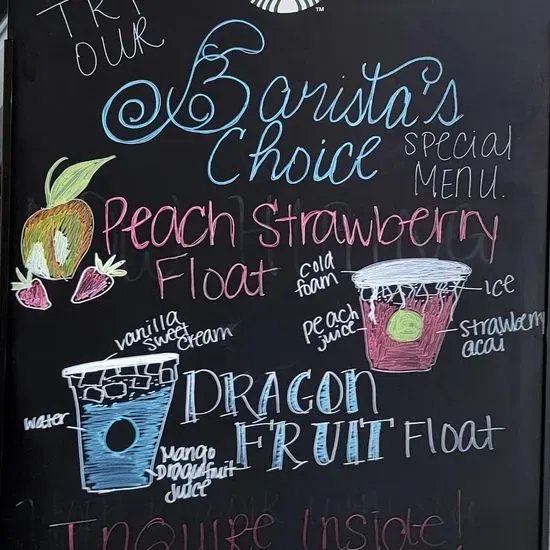 TRY
OUR
Barista's
Choice
SPECIAL
MENU.
Peach Strawberry
Float
cold
foam
ICE
peach
juice
strawberry
acai
vanilla
sweet
cream
water
Mango
Dragonfruit
juice
DRAGON
FRUIT Float
INQUIRE INSIDE!
TM